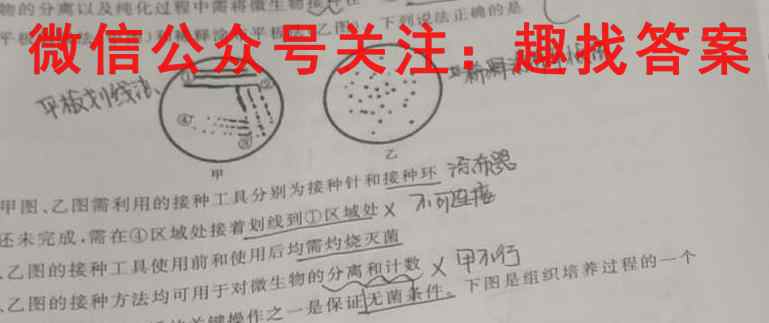 物的分离以及纯化过程中需将微生物接
下列说法正确的是
微信公众号关注：趣找答案
平板划线法
① ②
④ ③
甲
乙
甲图、乙图需利用的接种工具分别为接种针和接种环
还未完成，需在④区域处接着划线到①区域处× 不可连接
乙图的接种工具使用前和使用后均需灼烧灭菌
乙图的接种方法均可用于对微生物的分离和计数 × 甲不行
关键操作之一是保证无菌条件。下图是组织培养过程的一个